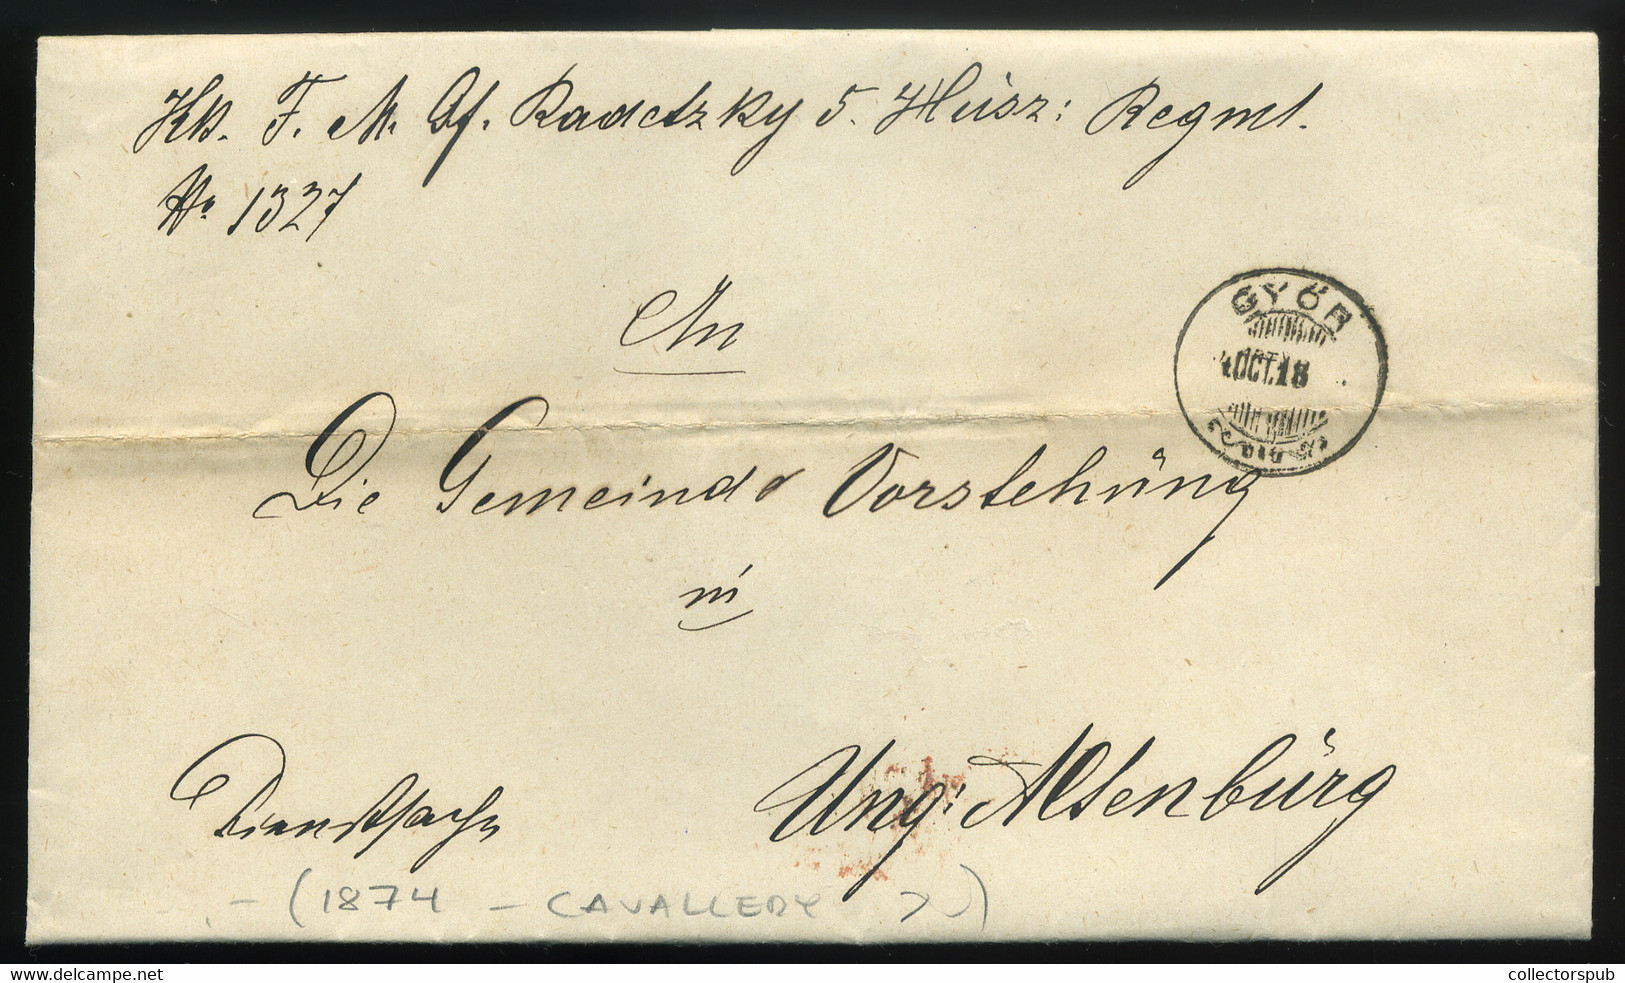 KK. F. M. Gf. Radetzky 5. Husz: Regmt.
No 1327
An
GYŐR
OCT. 18
Die Gemeinde Vorstehung
in
Dienstsache
Ung: Altenburg
(1874 - CAVALLERY )
hipstamp.com/store/collectorspub
collectorspub